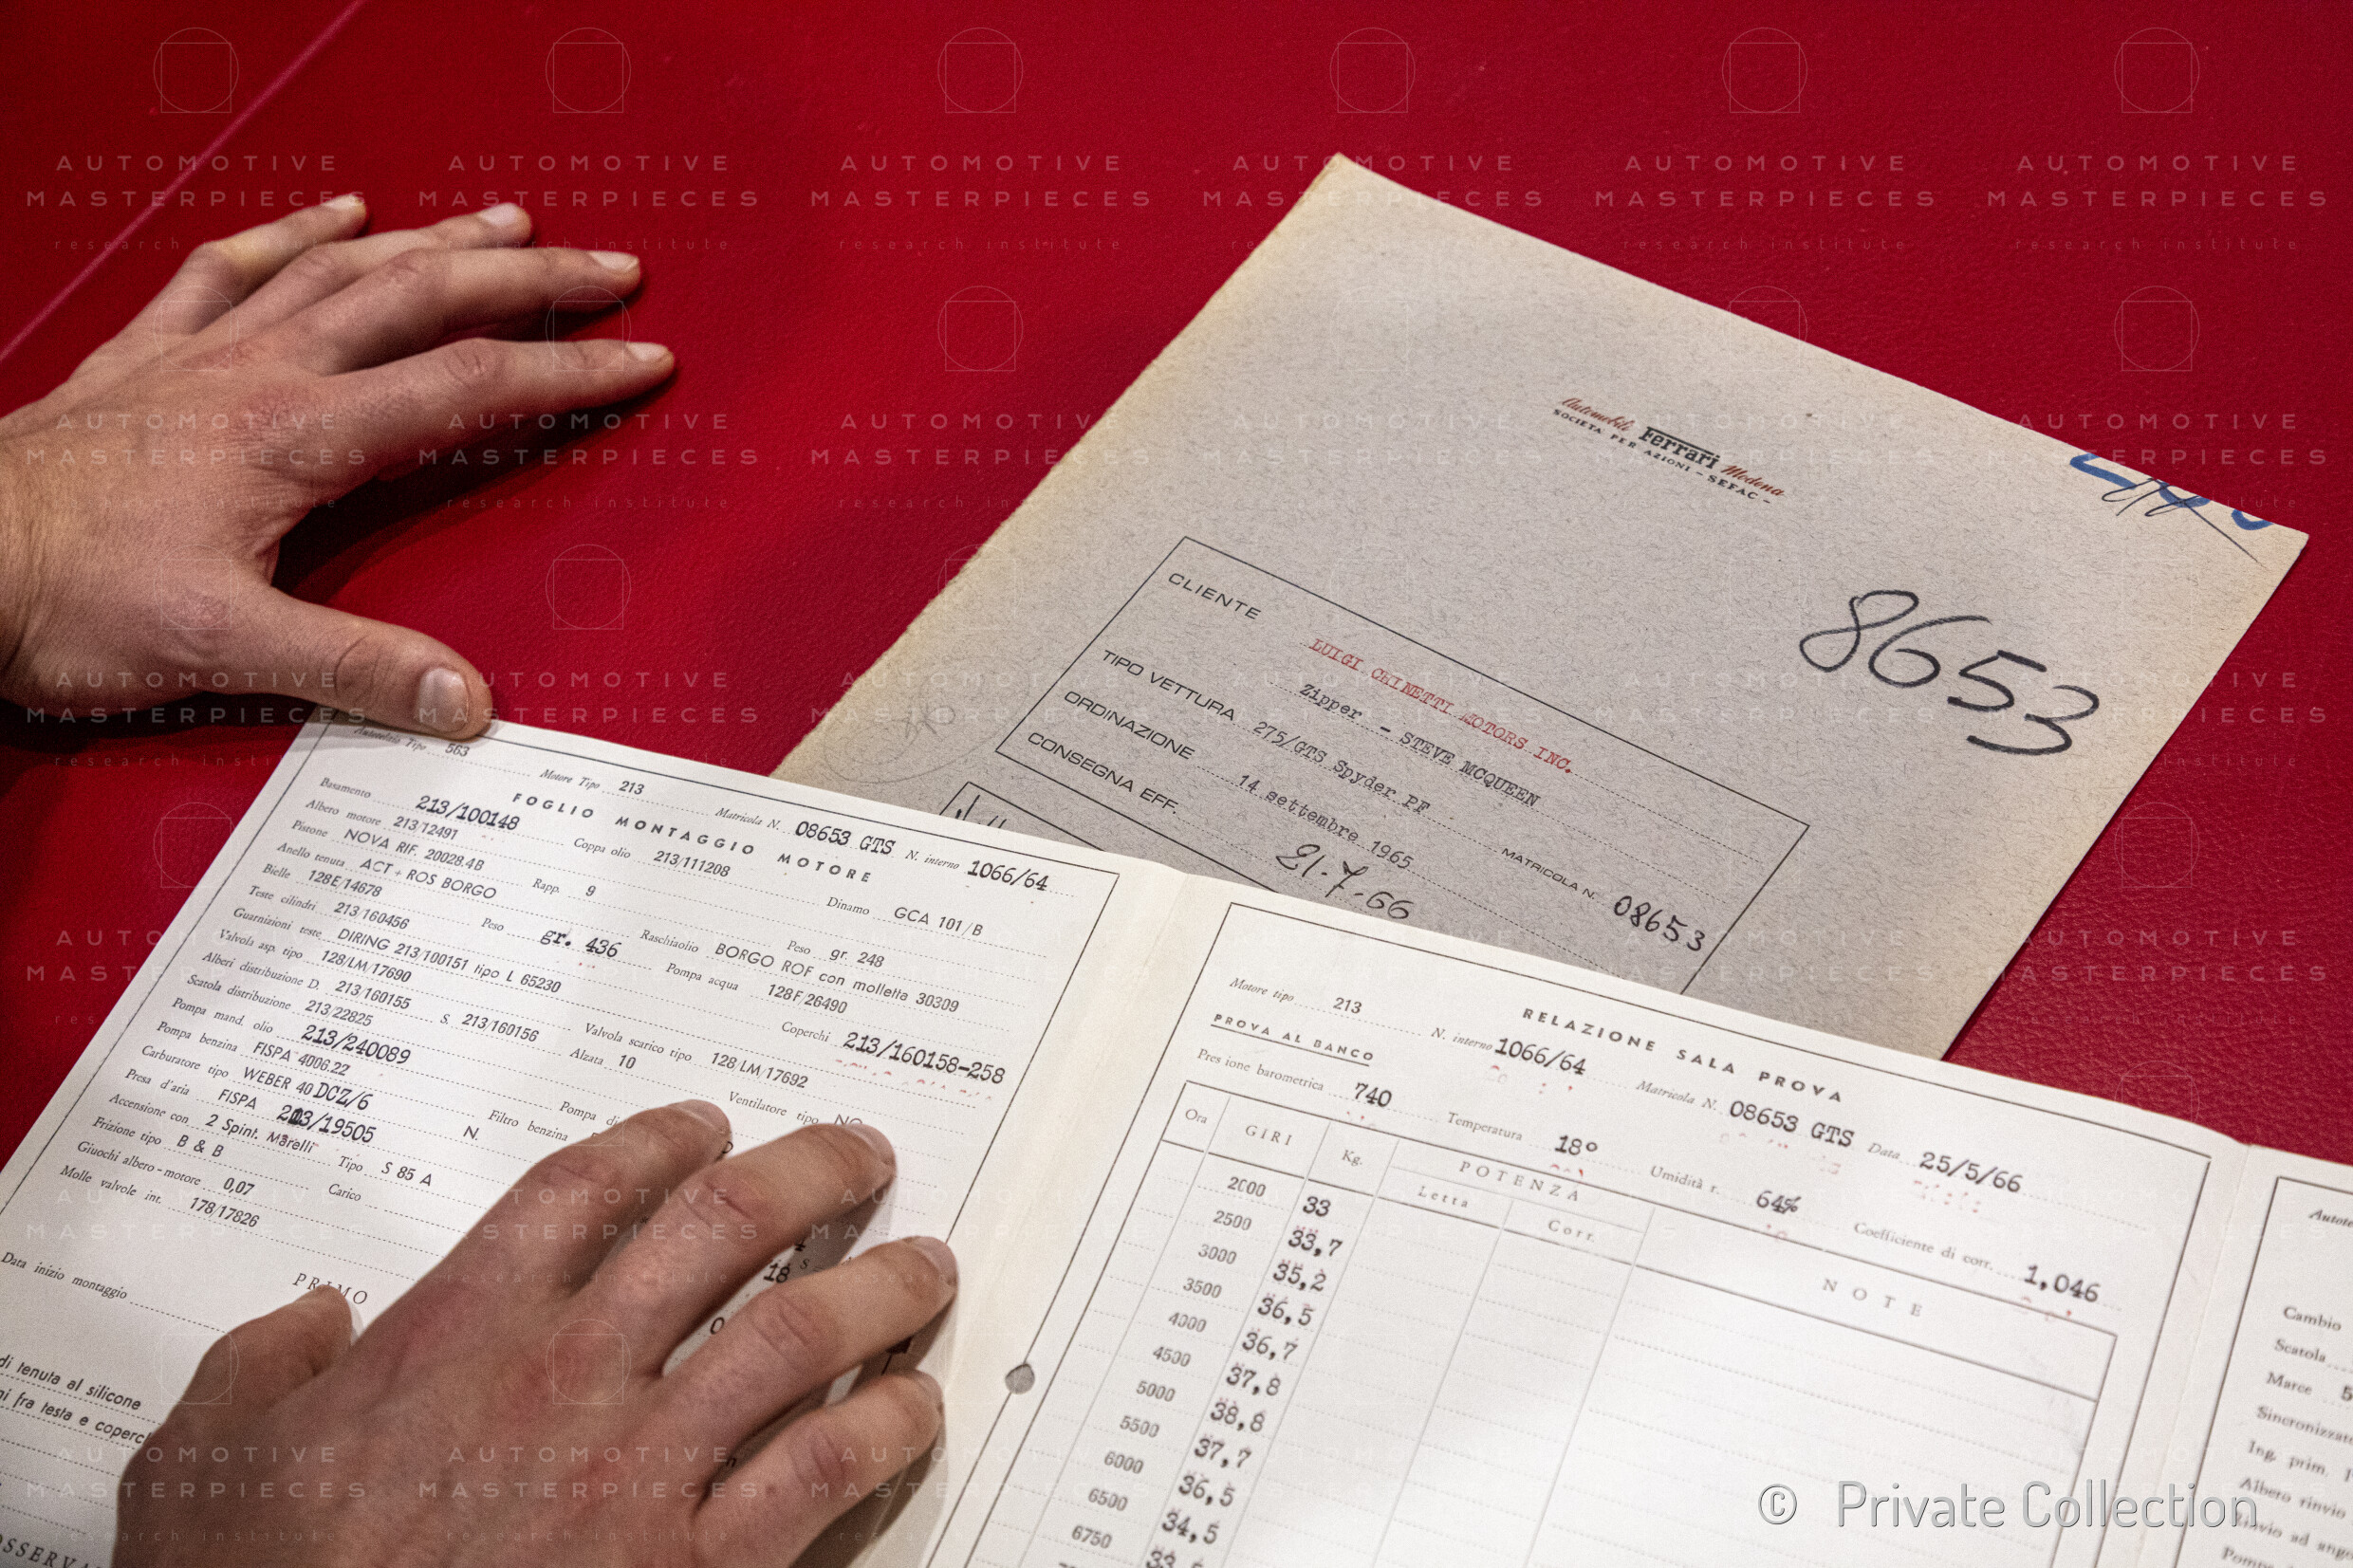 Automobili Ferrari Modena
SOCIETÀ PER AZIONI - SEFAC -
8653
CLIENTE
LUIGI CHINETTI MOTORS INC.
Zipper - STEVE MCQUEEN
TIPO VETTURA 275/GTS Spyder PF
MATRICOLA N. 08653
ORDINAZIONE 14 settembre 1965
CONSEGNA EFF. 21-7-66
Autotelaio Tipo 563 Motore Tipo 213 Matricola N. 08653 GTS N. interno 1066/64
FOGLIO MONTAGGIO MOTORE
Basamento 213/100148 Coppa olio 213/111208 Dinamo GCA 101/B
Albero motore 213/12491
Pistone NOVA RIF. 20028.4B Rapp. 9 Peso gr. 248
Anello tenuta ACT + ROS BORGO Raschiaolio BORGO ROF con molletta 30309
Bielle 128E/14678 Peso gr. 436 Pompa acqua 128F/26490
Teste cilindri 213/160456 Coperchi 213/160158-258
Guarnizioni teste DIRING 213/100151 tipo L 65230
Valvola asp. tipo 128/LM/17690 Valvola scarico tipo 128/LM/17692
Alberi distribuzione D. 213/160155 S. 213/160156 Alzata 10
Scatola distribuzione 213/22825 Ventilatore tipo NO
Pompa mand. olio 213/240089 Pompa di
Pompa benzina FISPA 4006.22 Filtro benzina
Carburatore tipo WEBER 40 DCZ/6 N.
Presa d'aria FISPA 213/19505
Accensione con 2 Spint. Marelli Tipo S 85 A
Frizione tipo B & B Carico
Giuochi albero-motore 0,07
Molle valvole int. 178/17826
18
PRIMO
Data inizio montaggio
di tenuta al silicone
fra testa e coperch
OSSERVA
RELAZIONE SALA PROVA
Motore tipo 213 N. interno 1066/64 Matricola N. 08653 GTS Data 25/5/66
PROVA AL BANCO
Pressione barometrica 740 Temperatura 18° Umidità r. 64% Coefficiente di corr. 1,046
Ora GIRI Kg. POTENZA NOTE
Letta Corr.
2000 33
2500 33,7
3000 35,2
3500 36,5
4000 36,7
4500 37,8
5000 38,8
5500 37,7
6000 36,5
6500 34,5
6750
Autote
Cambio
Scatola
Marce 5
Sincronizzato
Ing. prim.
Albero rinvio
Rinvio ad ango
Pompa
© Private Collection
AUTOMOTIVE
MASTERPIECES
research institute